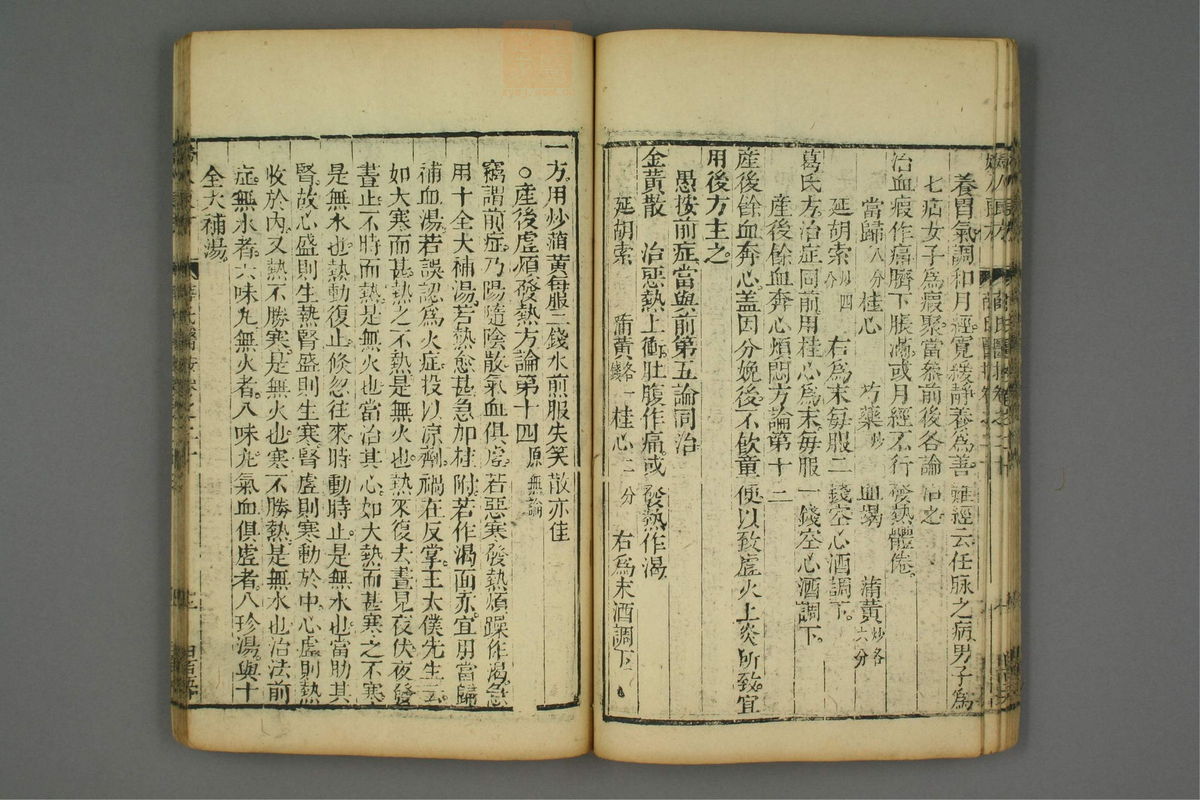 養胃氣調和月經寬緩靜養爲善難經云任脉之病男子爲
七疝女子爲瘕聚當叅前後各論治之
治血瘕作痛臍下脹滿或月經不行發熱體倦
當歸八分 桂心 芍藥炒 血竭 蒲黃炒各六分
延胡索炒四分 右爲末每服二錢空心酒調下
葛氏方治症同前用桂心爲末每服一錢空心酒調下
產後餘血奔心煩悶方論第十二
產後餘血奔心蓋因分娩後不飲童便以致虛火上炎所致宜
用後方主之
愚按前症當與前第五論同治
金黃散 治惡熱上衝肚腹作痛或發熱作渴
延胡索 蒲黃各一錢 桂心二分 右爲末酒調下
一方用炒蒲黃每服二錢水煎服失笑散亦佳
○產後虛煩發熱方論第十四原無論
竊謂前症乃陽隨陰散氣血俱虛若惡寒發熱煩躁作渴急
用十全大補湯若熱愈甚急加桂附若作渴面赤宜用當歸
補血湯若誤認爲火症投以凉劑禍在反掌王太僕先生云
如大寒而甚熱之不熱是無火也熱來復去晝見夜伏夜發
晝止不時而熱是無火也當治其心如大熱而甚寒之不寒
是無水也熱動復止倐忽往來時動時止是無水也當助其
腎故心盛則生熱腎盛則生寒腎虛則寒動於中心虛則熱
收於內又熱不勝寒是無火也寒不勝熱是無水也治法前
症無水者六味丸無火者八味丸氣血俱虛者八珍湯與十
全大補湯